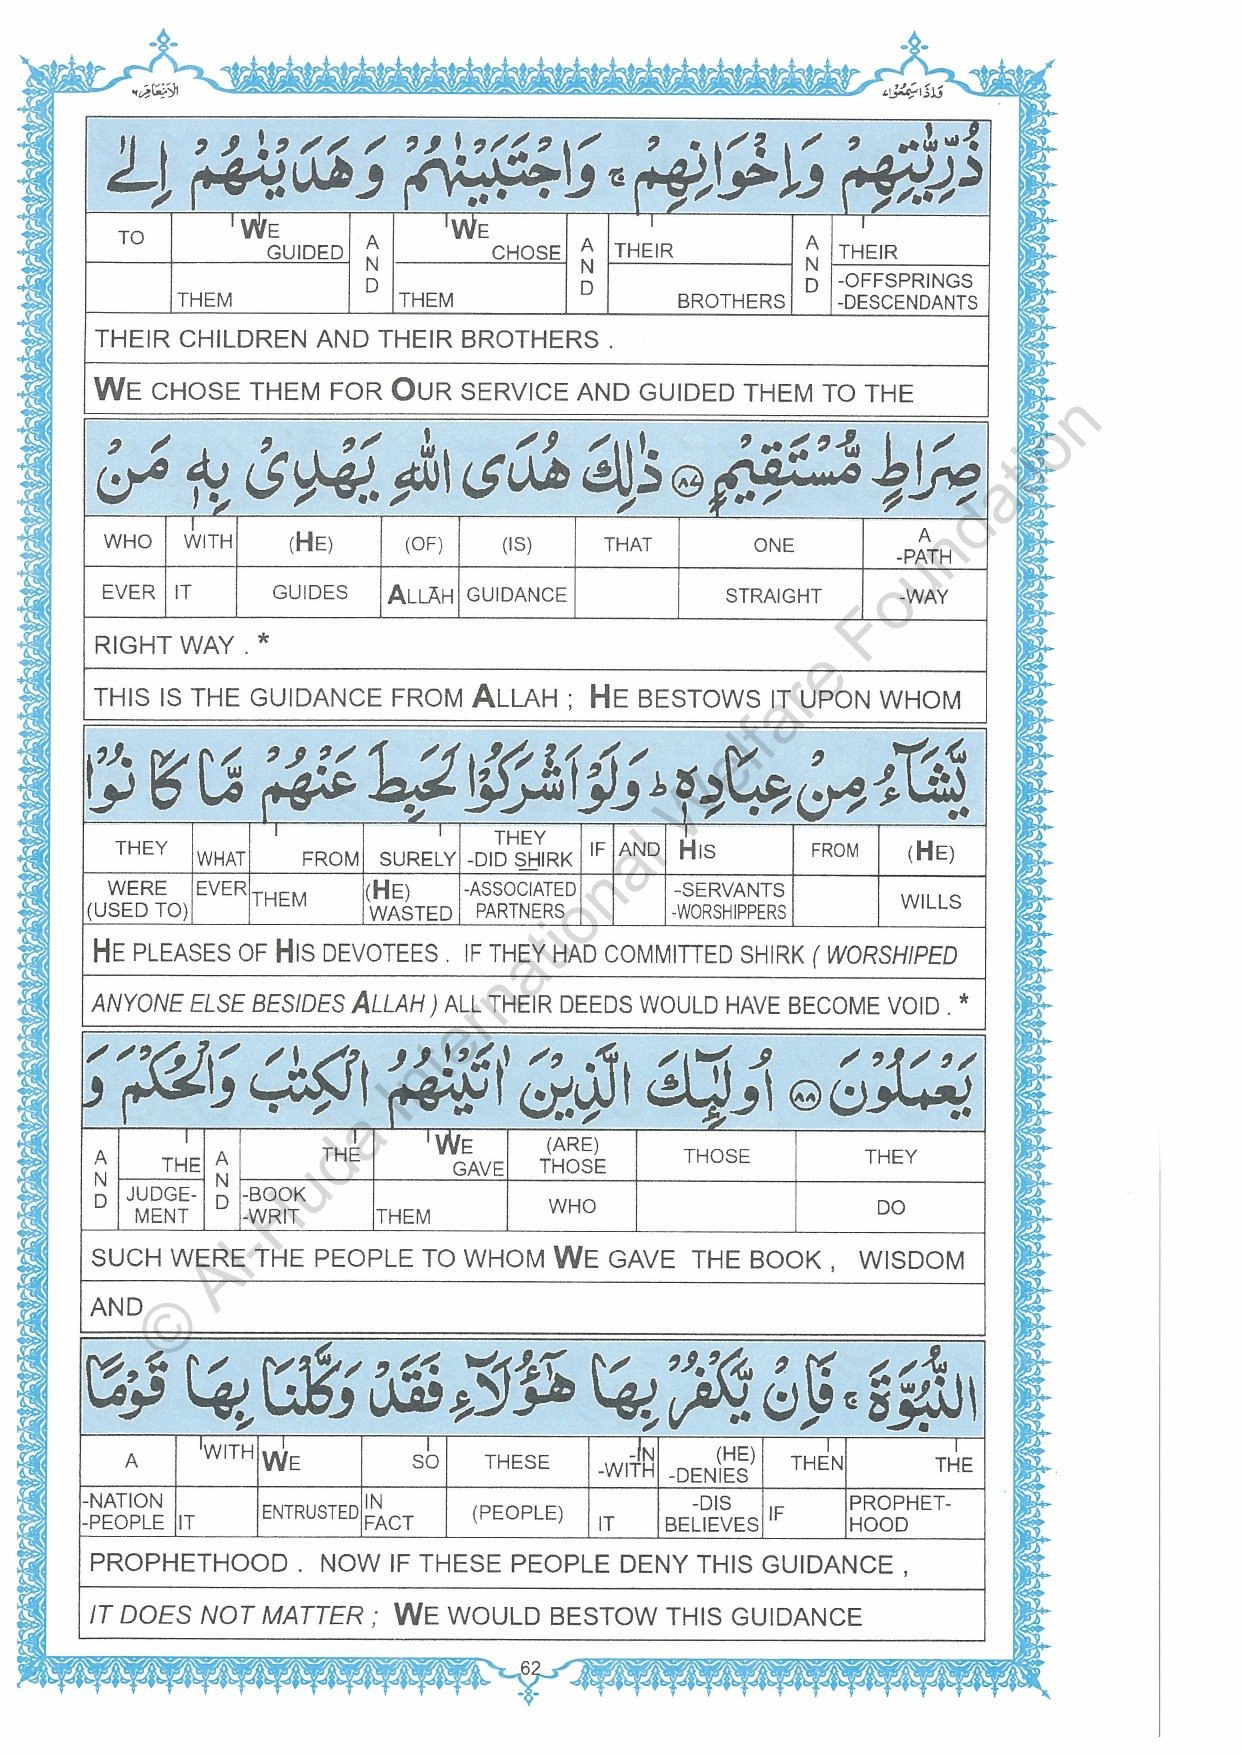 الانعام ٦
واذا سمعوا ٧
ذُرِّيّٰتِهِمْ وَاِخْوَانِهِمْ ۚ وَاجْتَبَيْنٰهُمْ وَهَدَيْنٰهُمْ اِلٰى
TO WE GUIDED THEM AND WE CHOSE THEM AND THEIR BROTHERS AND THEIR -OFFSPRINGS -DESCENDANTS
THEIR CHILDREN AND THEIR BROTHERS .
WE CHOSE THEM FOR OUR SERVICE AND GUIDED THEM TO THE
صِرَاطٍ مُّسْتَقِيْمٍ ۝٨٧ ذٰلِكَ هُدَى اللّٰهِ يَهْدِىْ بِهٖ مَنْ
WHO WITH (HE) (OF) (IS) THAT ONE A -PATH
EVER IT GUIDES ALLĀH GUIDANCE STRAIGHT -WAY
RIGHT WAY . *
THIS IS THE GUIDANCE FROM ALLAH ; HE BESTOWS IT UPON WHOM
يَّشَآءُ مِنْ عِبَادِهٖ ؕ وَلَوْ اَشْرَكُوْا لَحَبِطَ عَنْهُمْ مَّا كَانُوْا
THEY WHAT FROM SURELY THEY -DID SHIRK IF AND HIS FROM (HE)
WERE (USED TO) EVER THEM (HE) WASTED -ASSOCIATED PARTNERS -SERVANTS -WORSHIPPERS WILLS
HE PLEASES OF HIS DEVOTEES . IF THEY HAD COMMITTED SHIRK ( WORSHIPED
ANYONE ELSE BESIDES ALLAH ) ALL THEIR DEEDS WOULD HAVE BECOME VOID . *
يَعْمَلُوْنَ ۝٨٨ اُولٰٓئِكَ الَّذِيْنَ اٰتَيْنٰهُمُ الْكِتٰبَ وَالْحُكْمَ وَ
AND THE AND THE WE GAVE (ARE) THOSE THOSE THEY
JUDGE- MENT -BOOK -WRIT THEM WHO DO
SUCH WERE THE PEOPLE TO WHOM WE GAVE THE BOOK , WISDOM
AND
النُّبُوَّةَ ۚ فَاِنْ يَّكْفُرْ بِهَا هٰٓؤُلَآءِ فَقَدْ وَكَّلْنَا بِهَا قَوْمًا
A WITH WE SO THESE -IN -WITH (HE) -DENIES THEN THE
-NATION -PEOPLE IT ENTRUSTED IN FACT (PEOPLE) IT -DIS BELIEVES IF PROPHET- HOOD
PROPHETHOOD . NOW IF THESE PEOPLE DENY THIS GUIDANCE ,
IT DOES NOT MATTER ; WE WOULD BESTOW THIS GUIDANCE
62
© Al-Huda International Welfare Foundation